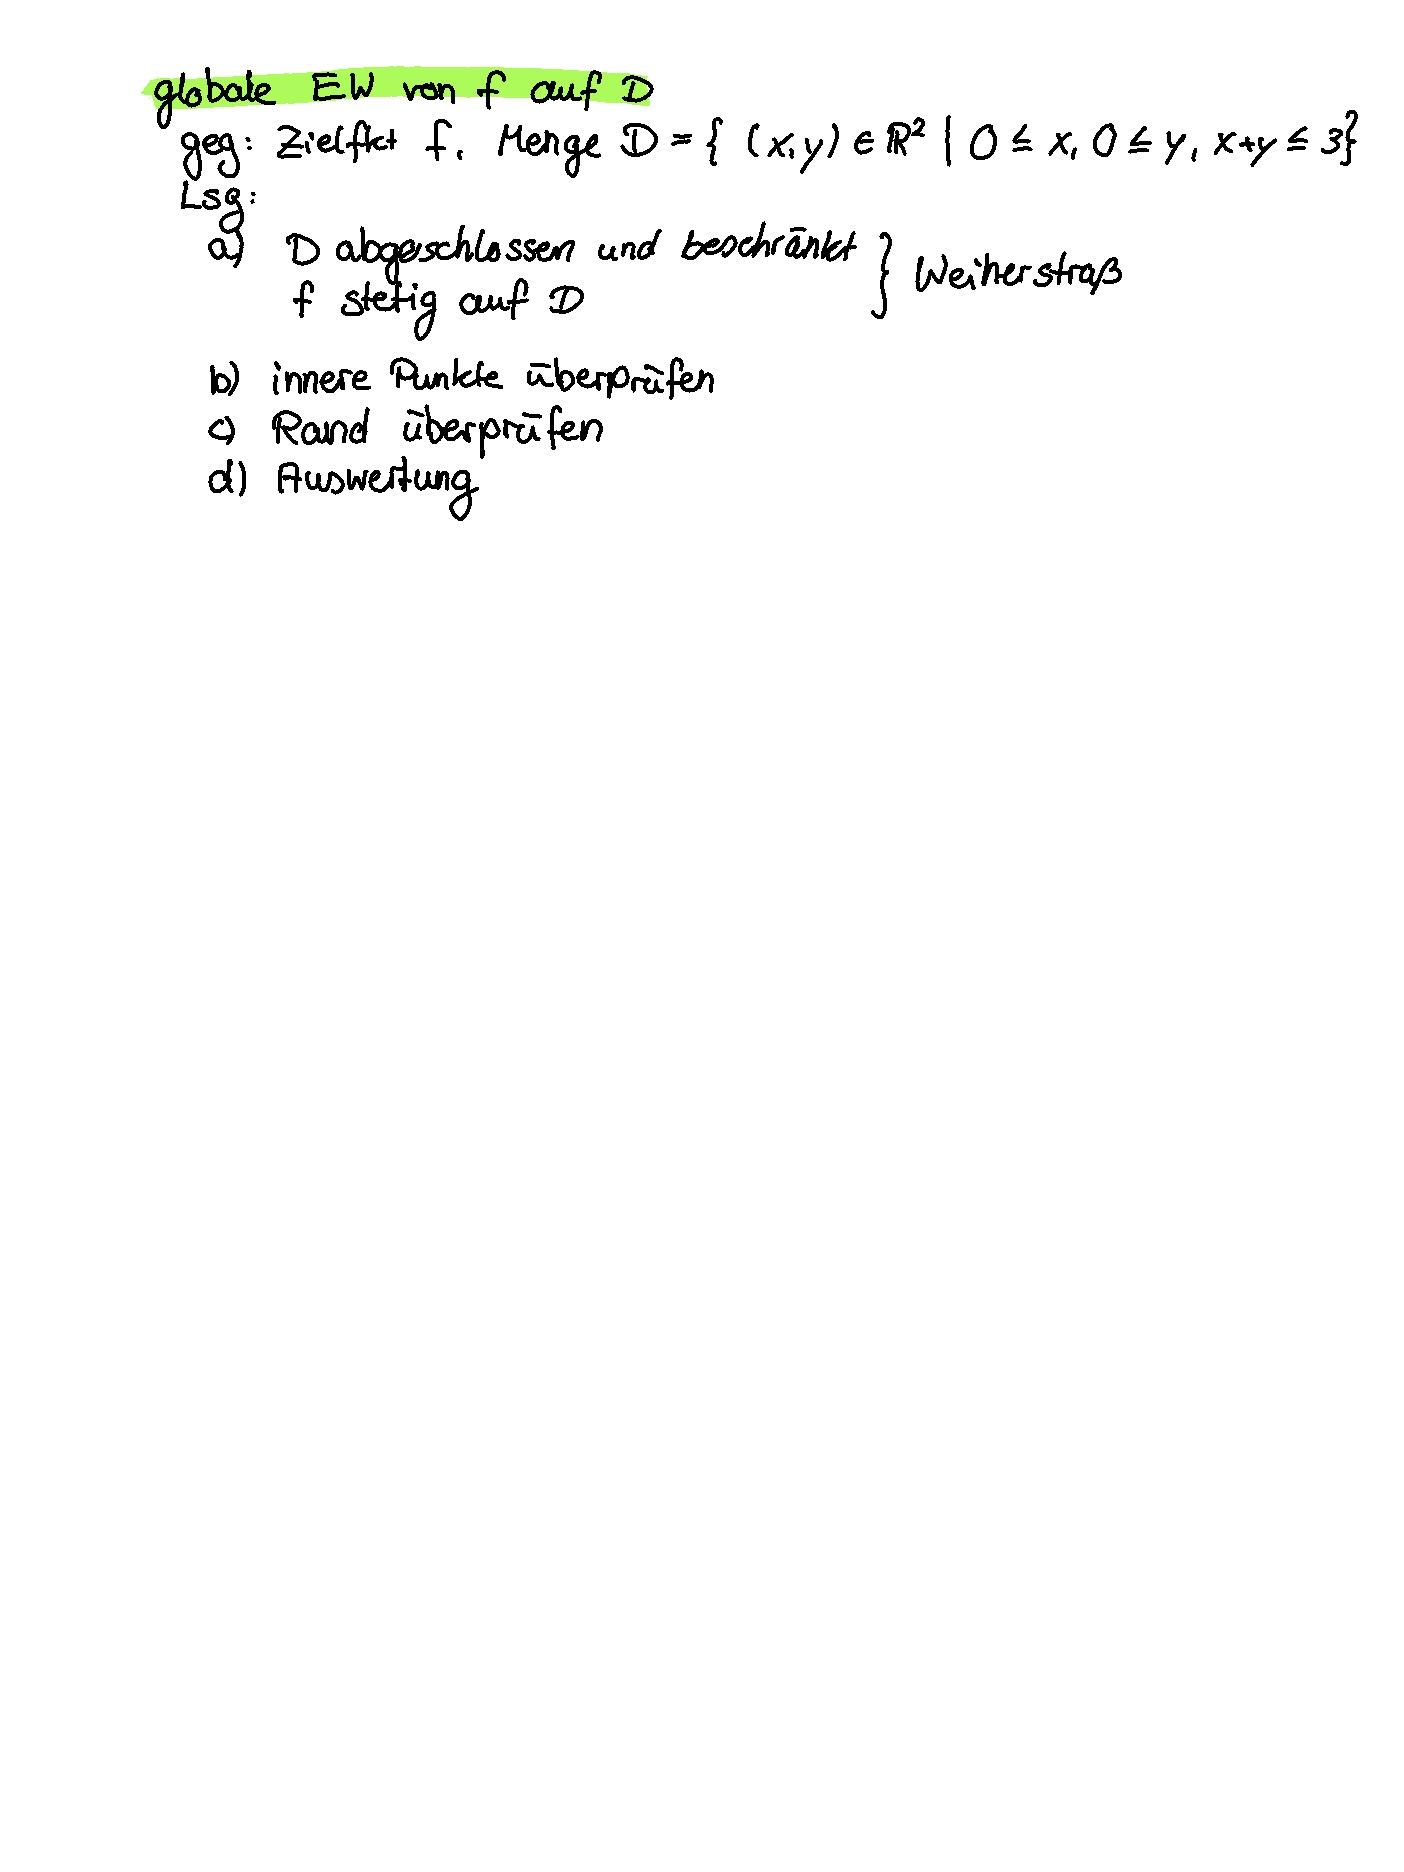 globale EW von f auf D
geg: Zielfkt f, Menge D = { (x,y) ∈ ℝ² | 0 ≤ x, 0 ≤ y, x+y ≤ 3}
Lsg:
a) D abgeschlossen und beschränkt
f stetig auf D } Weiherstraß
b) innere Punkte überprüfen
c) Rand überprüfen
d) Auswertung